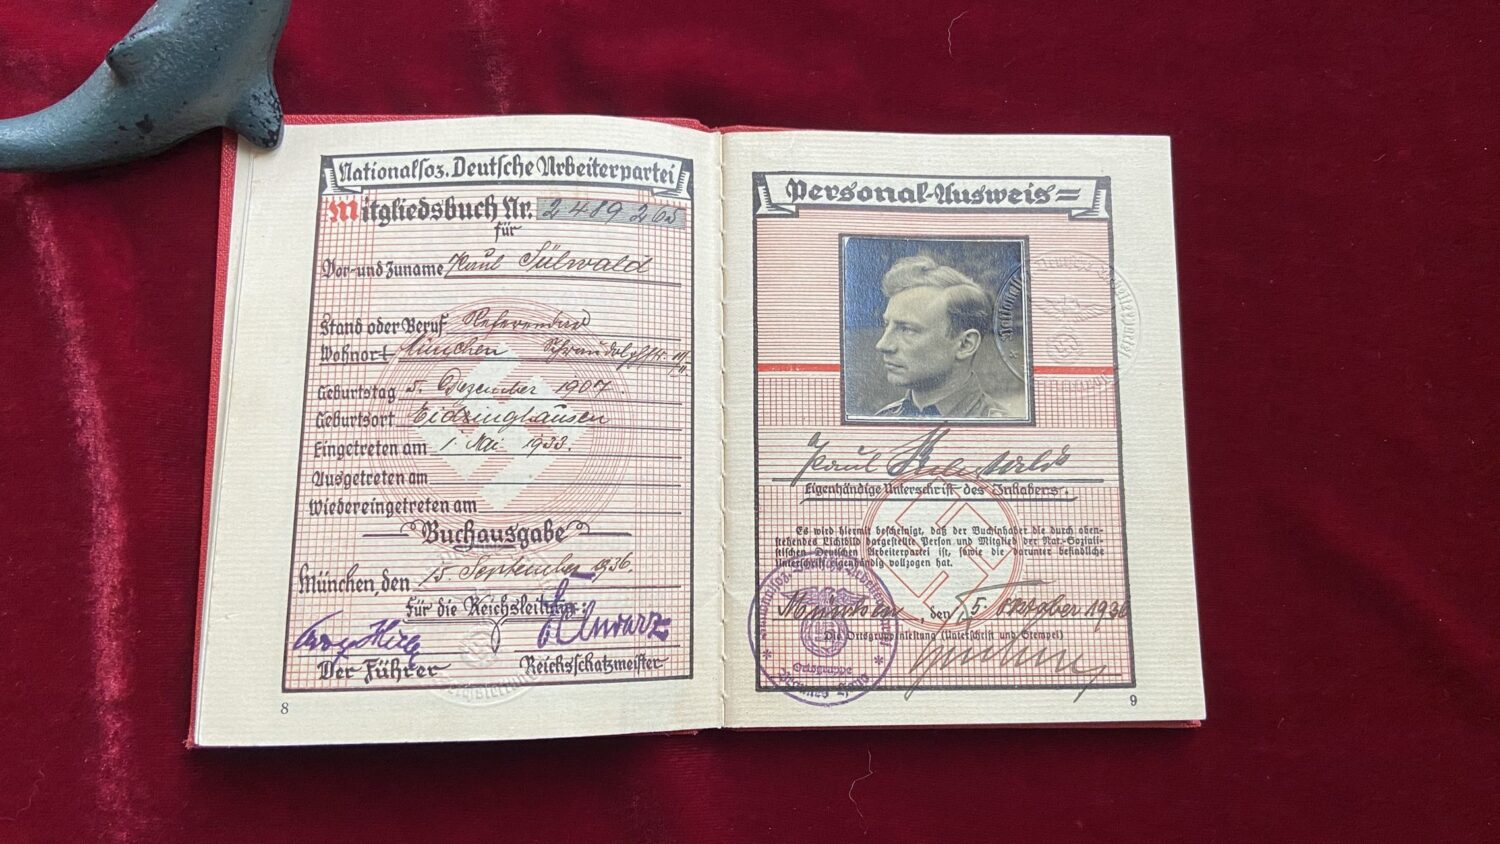 Nationalsoz. Deutsche Arbeiterpartei
Mitgliedsbuch Nr. 2489265
für
Vor- und Zuname Paul Sülwald
Stand oder Beruf Referendar
Wohnort München Schraudolphstr.
Geburtstag 5. Dezember 1907.
Geburtsort
Eingetreten am 1. Mai 1933.
Ausgetreten am
Wiedereingetreten am
Buchausgabe
München, den 15. September 1936.
Für die Reichsleitung:
Schwarz
Der Führer Reichsschatzmeister
8
Personal-Ausweis
Paul
Eigenhändige Unterschrift des Inhabers.
Es wird hiermit bescheinigt, daß der Buchinhaber die durch oben-
stehendes Lichtbild dargestellte Person und Mitglied der Nat.-Soziali-
stischen Deutschen Arbeiterpartei ist, sowie die darunter befindliche
Unterschrift eigenhändig vollzogen hat.
München, den 5. Oktober 1936
Die Ortsgruppenleitung (Unterschrift und Stempel)
Nationalsoz. Deutsche Arbeiterpartei
Ortsgruppe
9